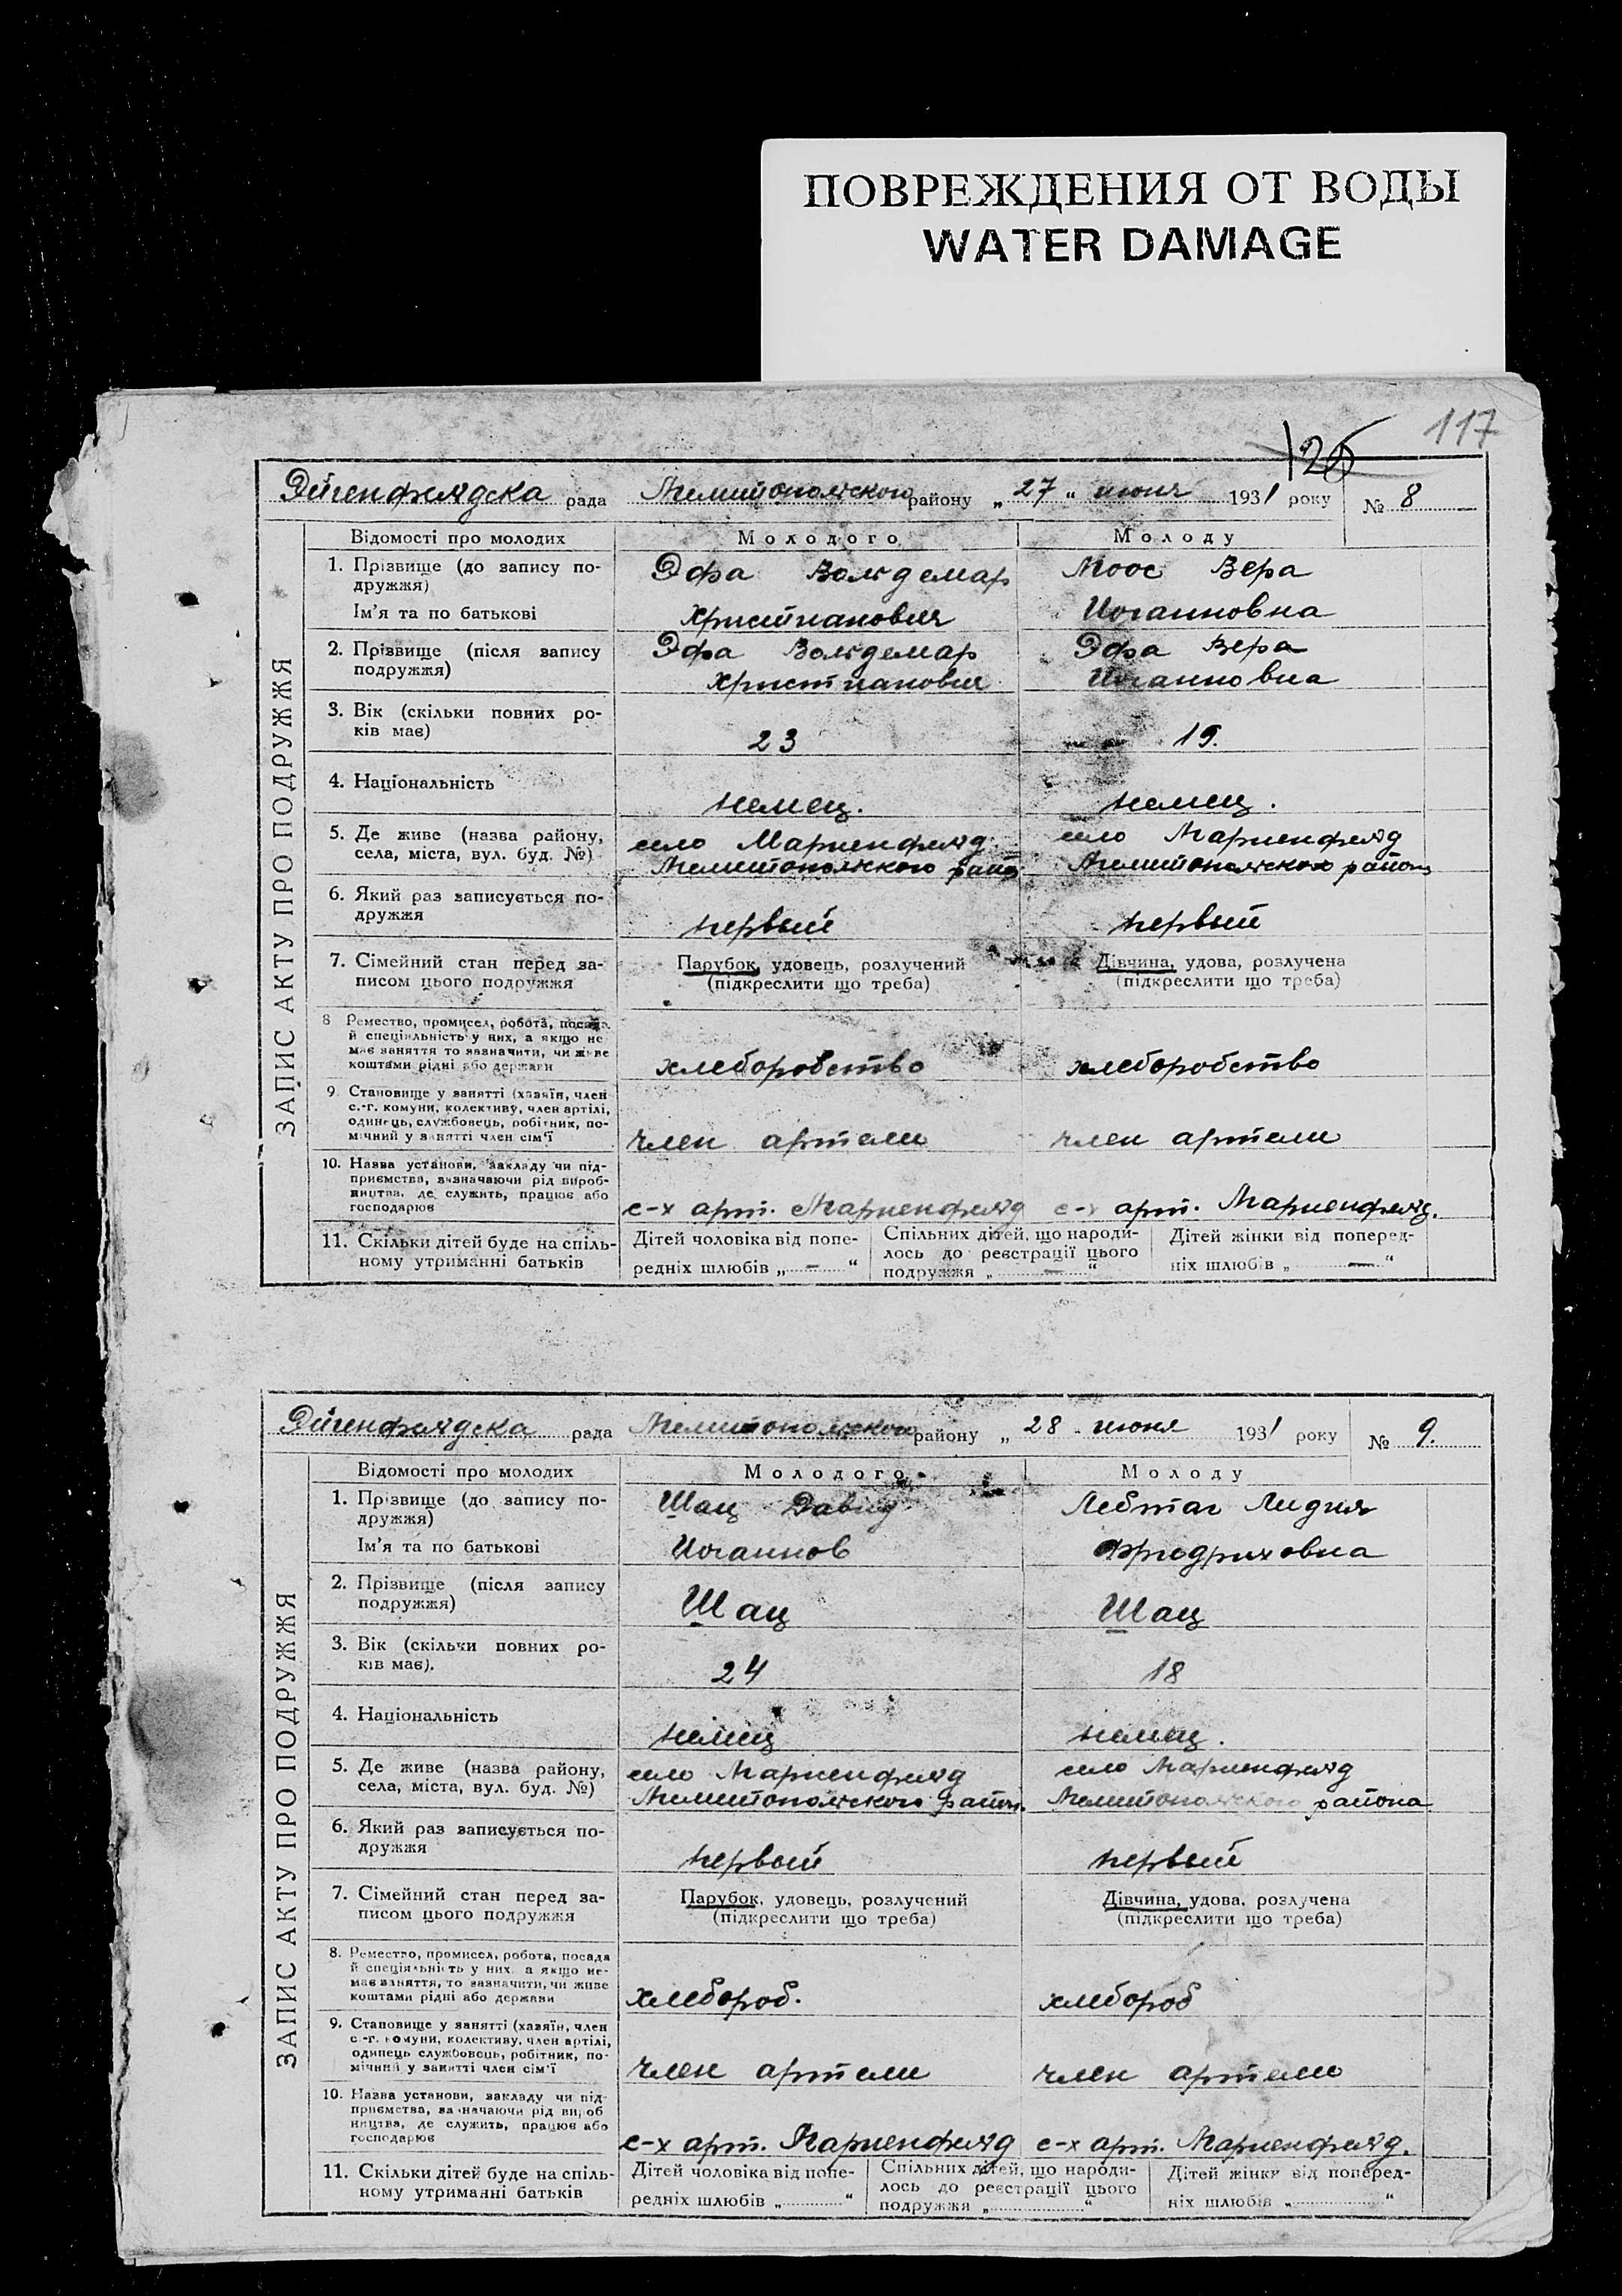 ПОВРЕЖДЕНИЯ ОТ ВОДЫ
WATER DAMAGE
117
126
Эйгенфельдска рада Мелитопольского району „27“ июня 1931 року № 8
ЗАПИС АКТУ ПРО ПОДРУЖЖЯ
Відомості про молодих Молодого Молоду
1. Прізвище (до запису по- Эфа Вольдемар Моос Вера
дружжя)
Ім’я та по батькові Христианович Иоганновна
2. Прізвище (після запису Эфа Вольдемар Эфа Вера
подружжя) Христианович Иоганновна
3. Вік (скільки повних ро-
ків має) 23 19.
4. Національність
немец. немец.
5. Де живе (назва району, село Мариенфельд. село Мариенфельд
села, міста, вул. буд. №) Мелитопольского район Мелитопольского района
6. Який раз записується по-
дружжя первый первый
7. Сімейний стан перед за- Парубок, удовець, розлучений Дівчина, удова, розлучена
писом цього подружжя (підкреслити що треба) (підкреслити що треба)
8 Ремество, промисел, робота, посада
й спеціяльність у них, а якщо не
має заняття то зазначити, чи живе
коштами рідні або держави хлеборобство хлеборобство
9. Становище у занятті (хазяїн, член
с.-г. комуни, колективу, член артілі,
одинець, службовець, робітник, по-
мічний у занятті член сім’ї член артели член артели
10. Назва установи, закладу чи під-
приємства, зазначаючи рід вироб-
ництва, де служить, працює або
господарює с-х арт. Мариенфельд с-х арт. Мариенфельд.
11. Скільки дітей буде на спіль- Дітей чоловіка від попе- Спільних дітей, що народи- Дітей жінки від поперед-
ному утриманні батьків редніх шлюбів „ — “ лось до реєстрації цього ніх шлюбів „ — “
подружжя „ — “
Эйгенфельдска рада Мелитопольского району „28 июня 1931 року № 9.
ЗАПИС АКТУ ПРО ПОДРУЖЖЯ
Відомості про молодих Молодого Молоду
1. Прізвище (до запису по- Шац Давид Лебтаг Лидия
дружжя)
Ім’я та по батькові Иоганнов Фридриховна
2. Прізвище (після запису
подружжя) Шац Шац
3. Вік (скільки повних ро-
ків має). 24 18
4. Національність
немец немец.
5. Де живе (назва району, село Мариенфельд село Мариенфельд
села, міста, вул. буд. №) Мелитопольского район. Мелитопольского района
6. Який раз записується по-
дружжя первый первый
7. Сімейний стан перед за- Парубок, удовець, розлучений Дівчина, удова, розлучена
писом цього подружжя (підкреслити що треба) (підкреслити що треба)
8. Ремество, промисел, робота, посада
й спеціяльність у них, а якщо не-
має заняття, то зазначити, чи живе
коштами рідні або держави хлебороб. хлебороб
9. Становище у занятті (хазяїн, член
с.-г. комуни, колективу, член артілі,
одинець службовець, робітник, по-
мічний у занятті член сім’ї член артели член артели
10. Назва установи, закладу чи під-
приємства, зазначаючи рід вироб
ництва, де служить, працює або
господарює с-х арт. Мариенфельд с-х арт. Мариенфельд.
11. Скільки дітей буде на спіль- Дітей чоловіка від попе- Спільних дітей, що народи- Дітей жінки від поперед-
ному утриманні батьків редніх шлюбів „ “ лось до реєстрації цього ніх шлюбів „ “
подружжя „ “